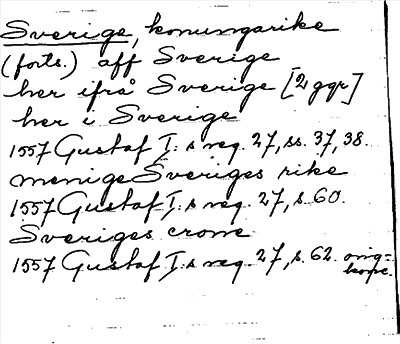 Sverige, konungarike
(forts.) aff Sverige
her ifrå Sverige [2 ggr]
her i Sverige
1557 Gustaf I:s reg. 27, ss. 37, 38.
menige Sveriges rike
1557 Gustaf I:s reg. 27, s. 60.
Sveriges crone
1557 Gustaf I:s reg. 27, s. 62. orig=
kopr.